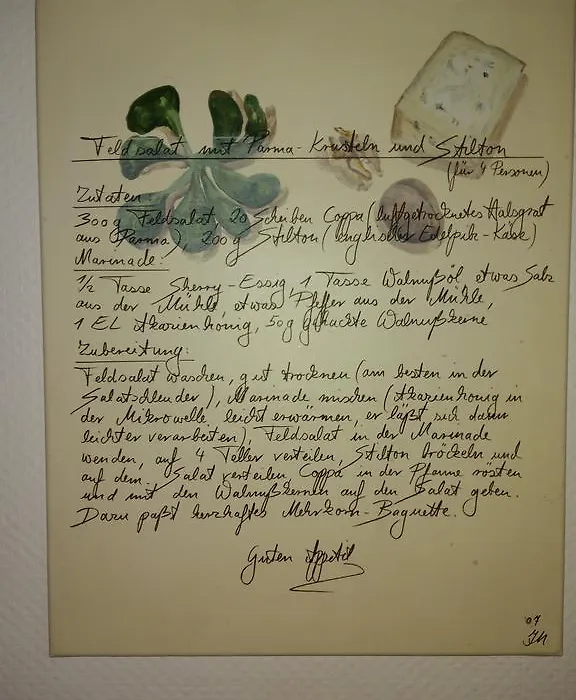 Feldsalat mit Parma-Krusteln und Stilton
(für 4 Personen)
Zutaten
300g Feldsalat, 20 Scheiben Coppa (luftgetrocknetes Halsgrat
aus Parma), 200g Stilton (englischer Edelpilz-Käse)
Marinade:
1/2 Tasse Sherry-Essig, 1 Tasse Walnußöl, etwas Salz
aus der Mühle, etwas Pfeffer aus der Mühle,
1 EL Akazienhonig, 50g gehackte Walnußkerne
Zubereitung:
Feldsalat waschen, gut trocknen (am besten in der
Salatschleuder), Marinade mischen (Akazienhonig in
der Mikrowelle leicht erwärmen, er läßt sich dann
leichter verarbeiten), Feldsalat in der Marinade
wenden, auf 4 Teller verteilen, Stilton bröckeln und
auf dem Salat verteilen, Coppa in der Pfanne rösten
und mit den Walnußkernen auf den Salat geben.
Dazu paßt herzhaftes Mehrkorn-Baguette.
Guten Appetit
07